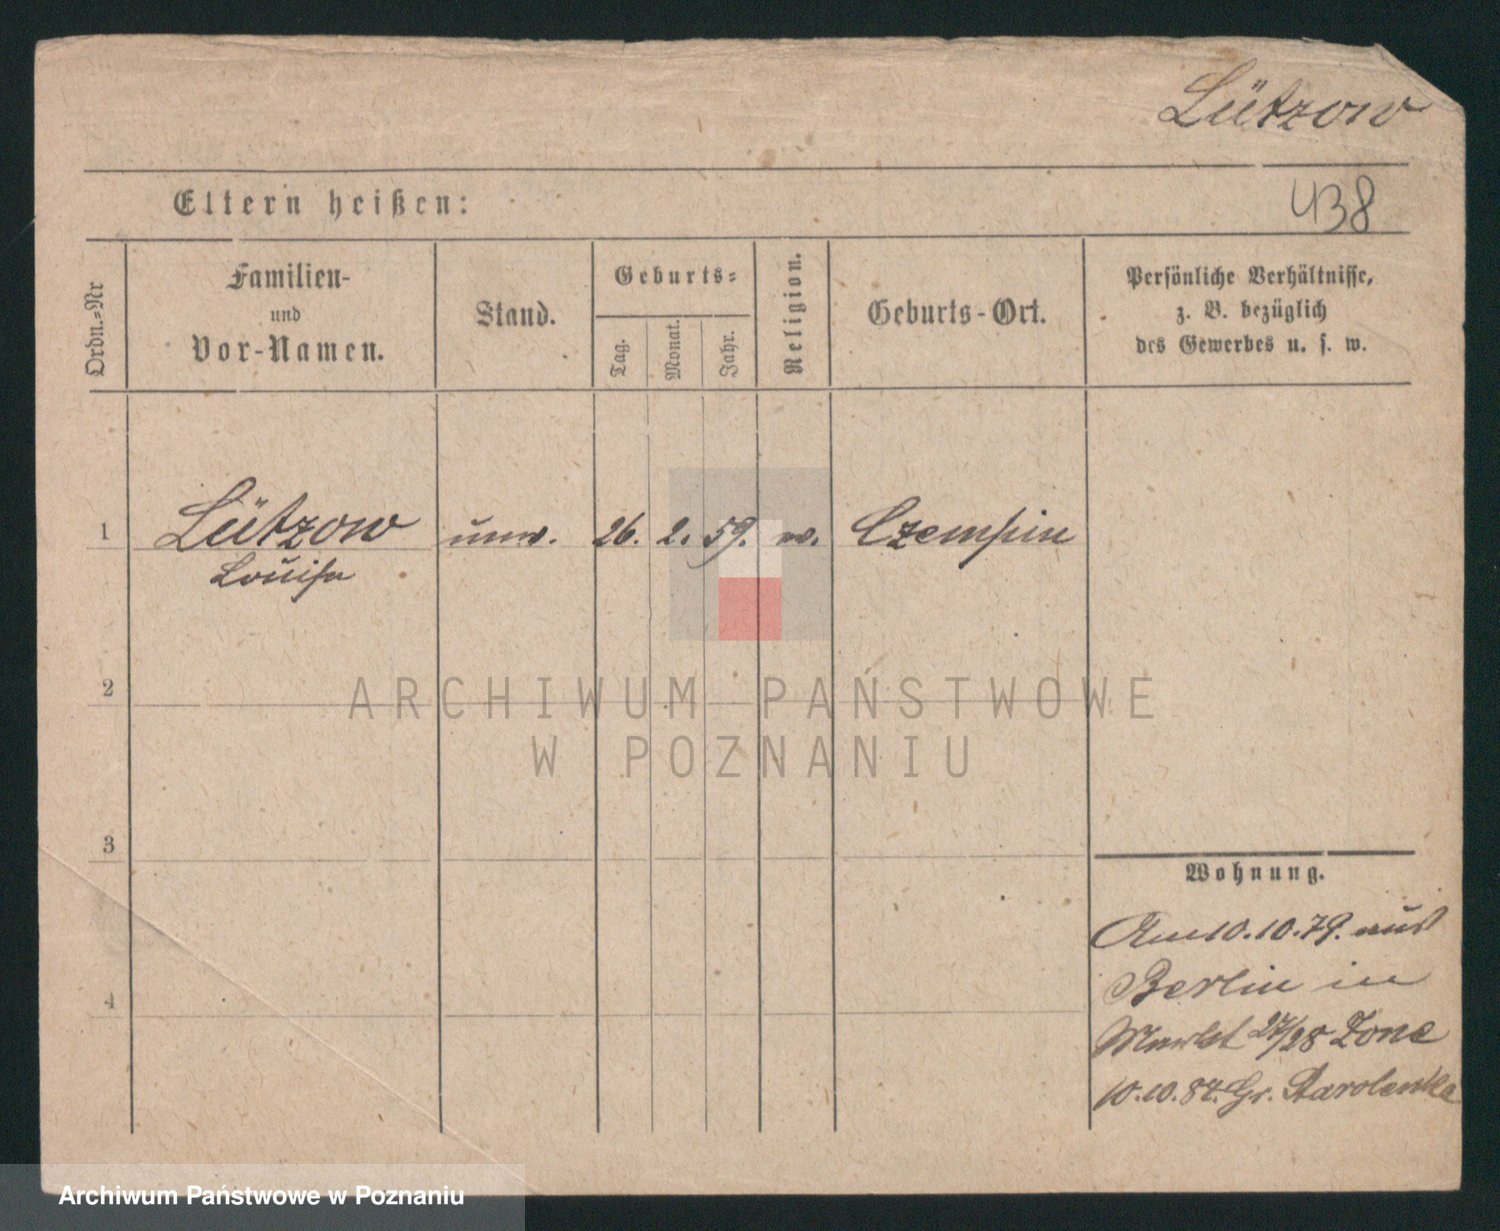 Lützow
438
Eltern heißen:
Ordn.-Nr
Familien-
und
Vor-Namen.
Stand.
Geburts-
Tag.
Monat.
Jahr.
Religion.
Geburts-Ort.
Persönliche Verhältnisse,
z. B. bezüglich
des Gewerbes u. s. w.
1 Lützow unv. 26. 2. 59. Czempin
Louise
2
3
4
Wohnung.
Am 10.10.79. aus
Berlin in
Markt 27/28
10.10.84. Gr. Starolenka
ARCHIWUM PAŃSTWOWE
W POZNANIU
Archiwum Państwowe w Poznaniu